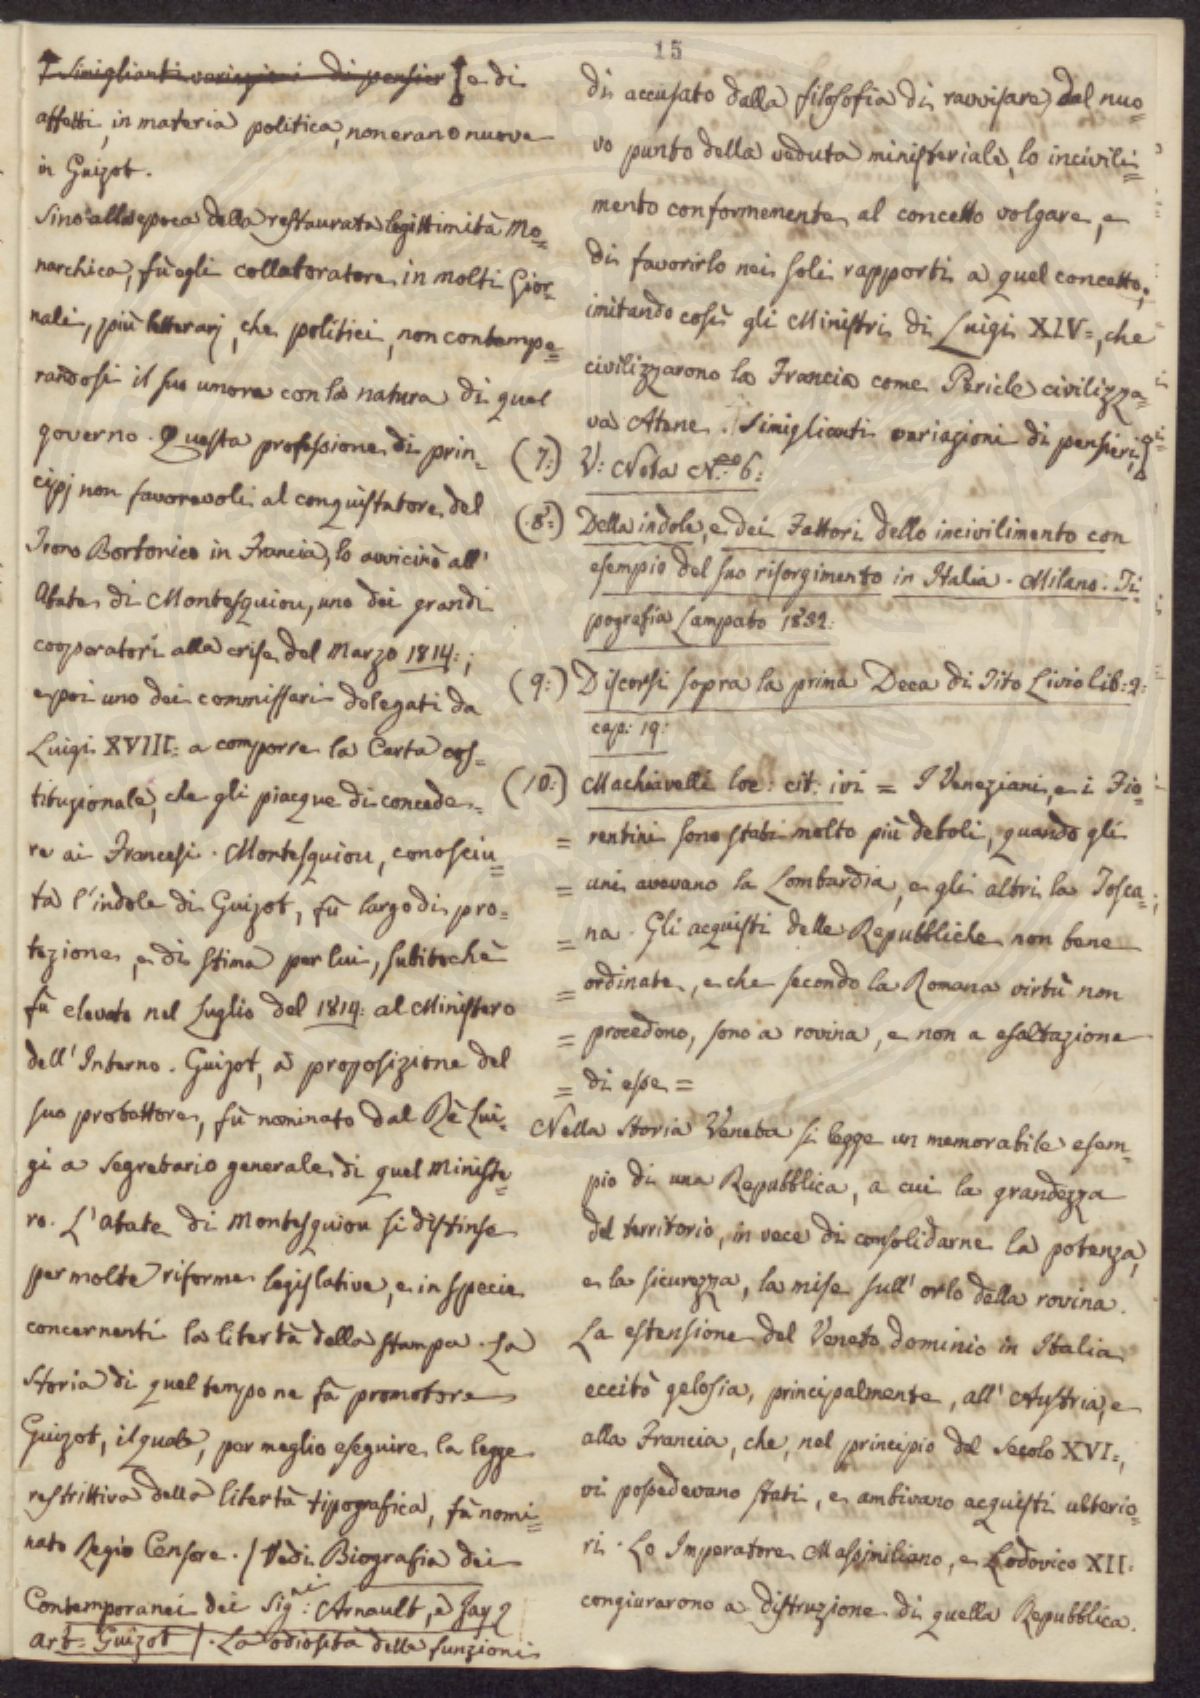 15
Simiglianti variazioni di pensier e di
affetti, in materia politica, non erano nuove
in Guizot.
Sino all'epoca della restaurata legittimità Mo=
narchica, fù egli collaboratore in molti Gior=
nali, più letterarj, che politici, non contempe=
randosi il suo umore con la natura di quel
governo. Questa professione di prin=
cipj non favorevoli al conquistatore del
Trono Borbonico in Francia, lo avvicinò all'
Abate di Montesquiou, uno dei grandi
cooperatori alla crise del Marzo 1814:;
e poi uno dei commissari delegati da
Luigi XVIII: a comporre la Carta cos=
tituzionale, che gli piacque di concede=
re ai Francesi. Montesquiou, conosciu=
ta l'indole di Guizot, fù largo di pro=
tezione, e di stima per lui, subitochè
fù elevato nel luglio del 1814: al Ministero
dell'Interno. Guizot, a proposizione del
suo protettore, fù nominato dal Rè Lui=
gi a Segretario generale di quel Ministe=
ro. L'abate di Montesquiou si distinse
per molte riforme legislative, e in specie
concernenti la libertà della stampa. La
Storia di quel tempo ne fà promotore
Guizot, il quale, per meglio eseguire la legge
restrittiva della libertà tipografica, fù nomi=
nato Regio Censore. / Vedi Biografia dei
Contemporanei dei Sig:ni Arnault, e Jay
art: Guizot /. La odiosità delle funzioni
di accusato dalla filosofia di ravvisare, dal nuo=
vo punto della veduta ministeriale, lo incivili=
mento conformemente al concetto volgare, e
di favorirlo nei soli rapporti a quel concetto;
imitando così gli Ministri di Luigi XIV=, che
civilizzarono la Francia come Pericle civilizza=
va Atene. Simiglianti variazioni di pensieri,
(7:) V: Nota N.º 6:
(8:) Della indole, e dei Fattori dello incivilimento con
esempio del suo risorgimento in Italia. Milano. Ti=
pografia Lampato 1832:
(9:) Discorsi sopra la prima Deca di Tito Livio lib: 2:
cap: 19:
(10:) Machiavelli loc: cit: ivi = I Veneziani, e i Fio=
= rentini sono stati molto più deboli, quando gli
= uni avevano la Lombardia, e gli altri la Tosca=
= na. Gli acquisti delle Repubbliche non bene
= ordinate, e che secondo la Romana virtù non
= procedono, sono a rovina, e non a esaltazione
= di esse =
Nella Storia Veneta si legge un memorabile esem=
pio di una Repubblica, a cui la grandezza
del territorio, in vece di consolidarne la potenza,
e la sicurezza, la mise sull'orlo della rovina.
La estensione del Veneto dominio in Italia
eccitò gelosia, principalmente, all'Austria, e
alla Francia, che, nel principio del Secolo XVI=,
vi possedevano stati, e ambivano acquisti ulterio=
ri. Lo Imperatore Massimiliano, e Lodovico XII:
congiurarono a distruzione di quella Repubblica.